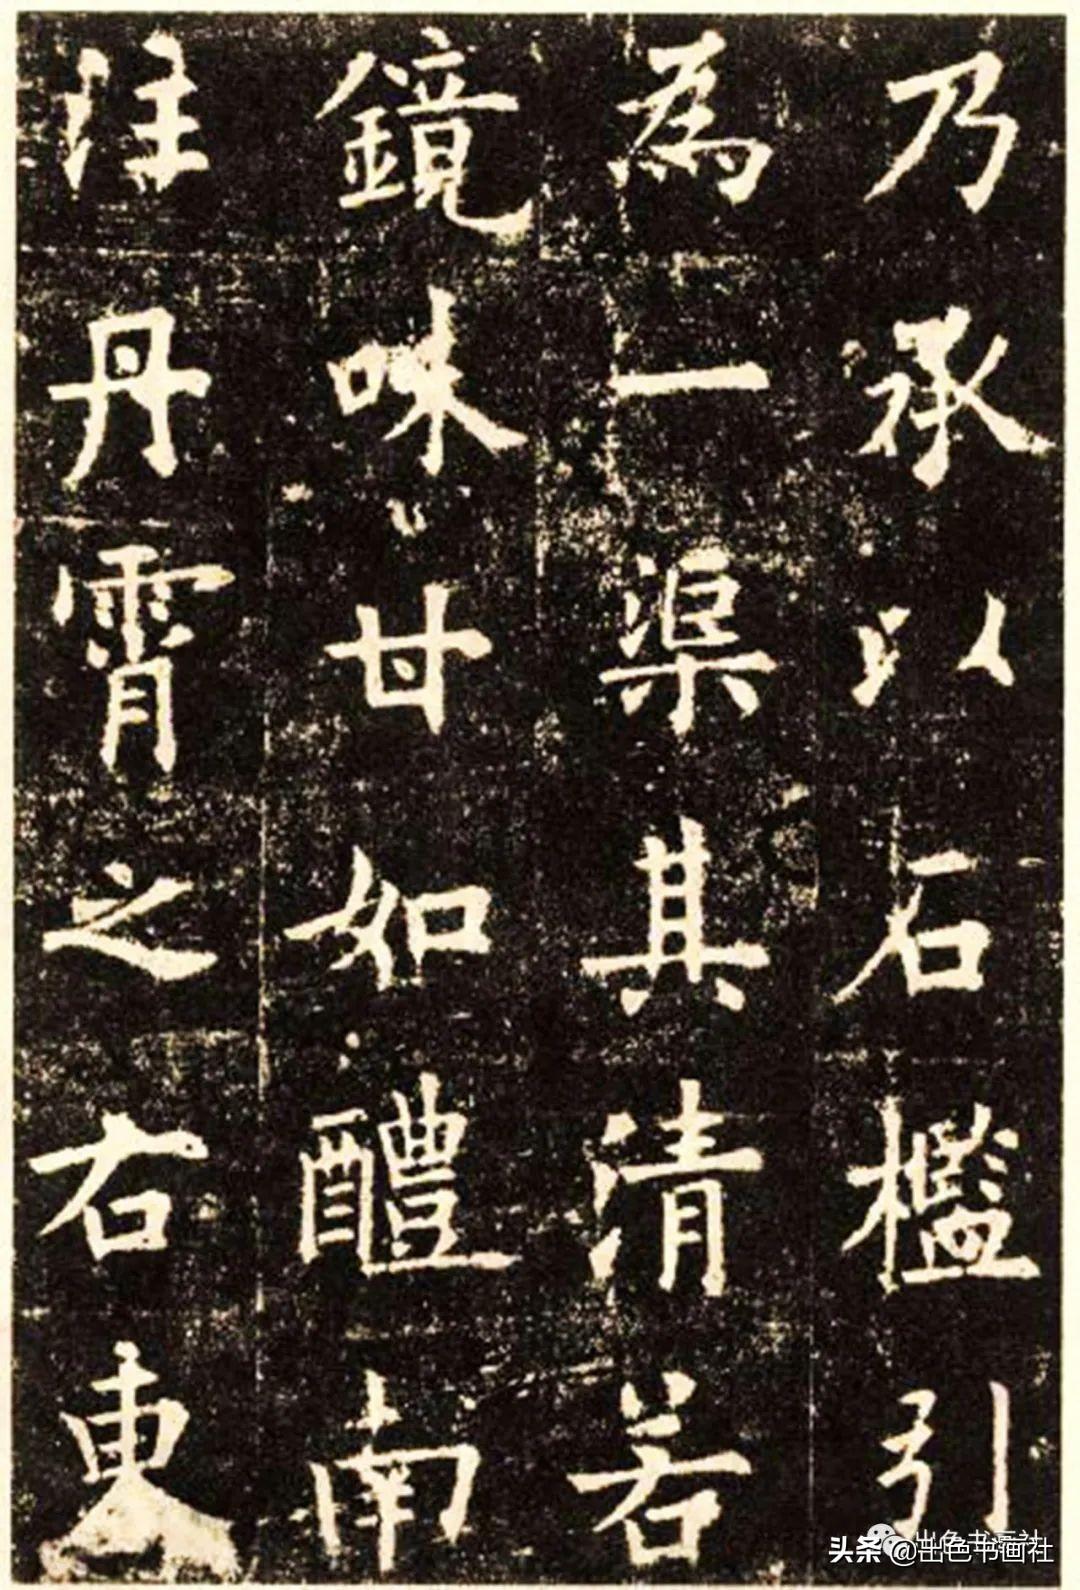 乃承以石檻引
為一渠其清若
鏡味甘如醴南
注丹霄之右東
出色书画社
头条@出色书画社